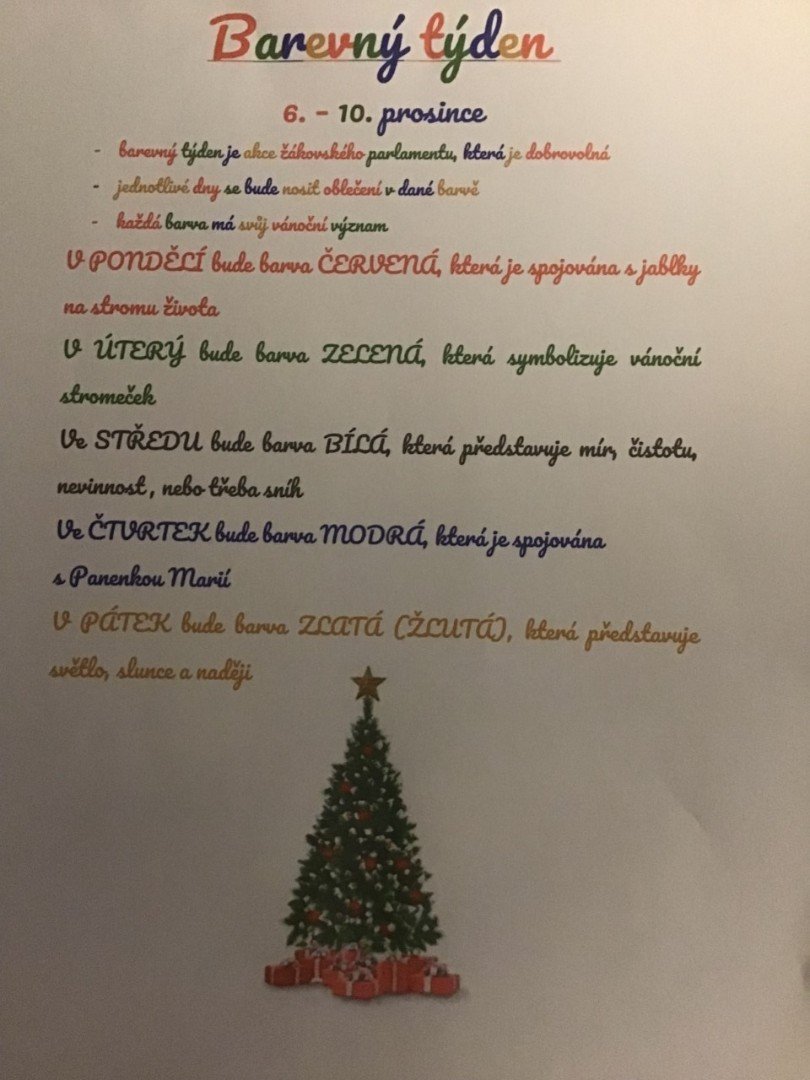 Barevný týden
6. - 10. prosince
- barevný týden je akce žákovského parlamentu, která je dobrovolná
- jednotlivé dny se bude nosit oblečení v dané barvě
- každá barva má svůj vánoční význam
V PONDĚLÍ bude barva ČERVENÁ, která je spojována s jablky
na stromu života
V ÚTERÝ bude barva ZELENÁ, která symbolizuje vánoční
stromeček
Ve STŘEDU bude barva BÍLÁ, která představuje mír, čistotu,
nevinnost, nebo třeba sníh
Ve ČTVRTEK bude barva MODRÁ, která je spojována
s Panenkou Marií
V PÁTEK bude barva ZLATÁ (ŽLUTÁ), která představuje
světlo, slunce a naději